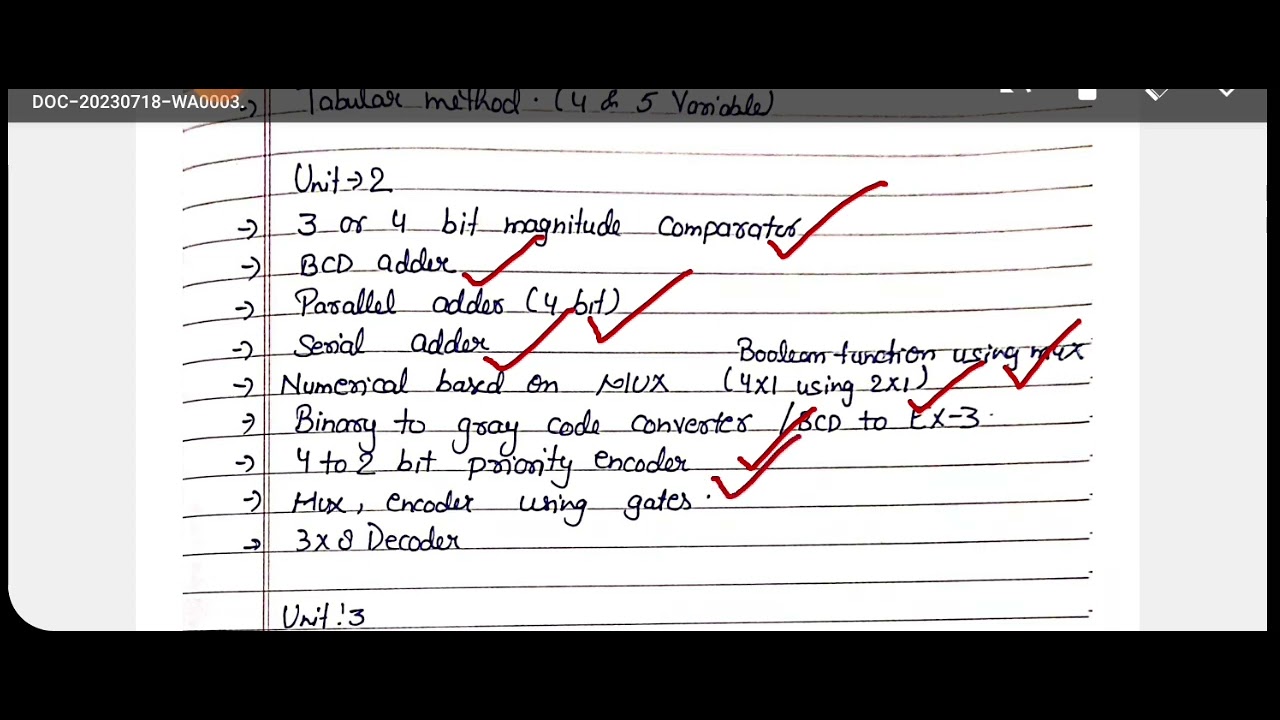 DOC-20230718-WA0003.
-> Tabular method. (4 & 5 Variable)
Unit → 2
-> 3 or 4 bit magnitude comparator
-> BCD adder
-> Parallel adder (4 bit)
-> Serial adder
Boolean function using mux
-> Numerical based on MUX (4x1 using 2x1)
-> Binary to gray code converter / BCD to EX-3.
-> 4 to 2 bit priority encoder
-> Mux, encoder using gates.
-> 3x8 Decoder
Unit: 3